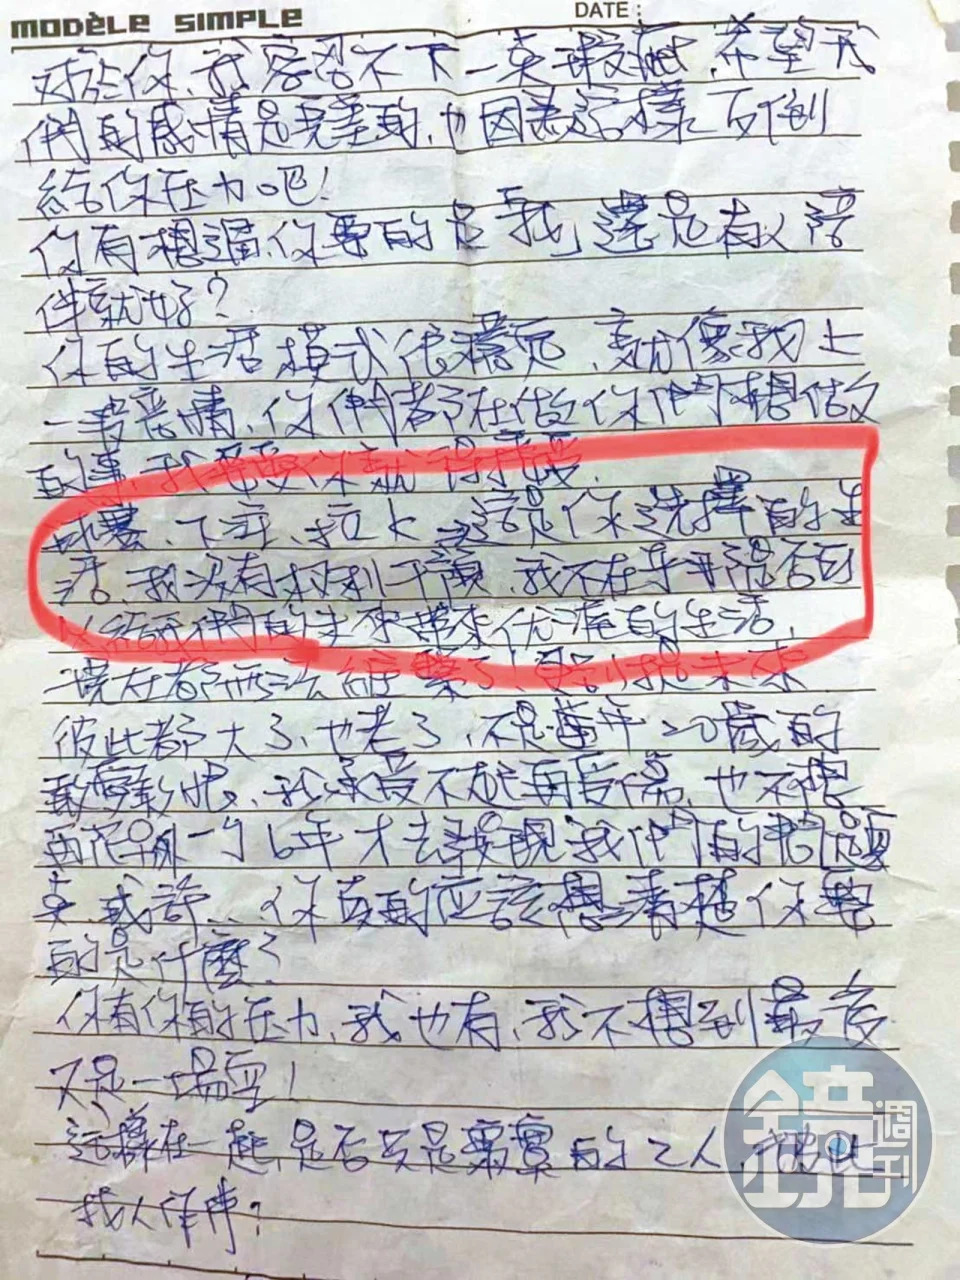 MODÈLE SIMPLE
DATE :
對於你、我容忍不下一束瑕疵、希望我
們的感情是完整的、也因為這樣反倒
給你壓力吧!
你有想過、你要的是「我」還是有人陪
伴就好?
你的生活模式很穩定、就像我上
一書、你們都在做你們想做
的事、我
、下、拉k、這是你選擇的生
活、我沒有权利干預、我不在乎是否可
以給我們的生帶來优渥的生活、
現在都無法了、更別提未來
彼此都大了、也老了、不是當年20歲的
敢愛敢恨、我承受不起再受傷、也不想
再花另外一个6年才去發現我們的問題
点、或許...你真的应該想清楚你要
的是什麼?
你有你的压力、我也有、我不想到最後
又是一場空!
這樣在一起、是否只是寂寞的2人、彼此
找人作陣?
鏡週刊